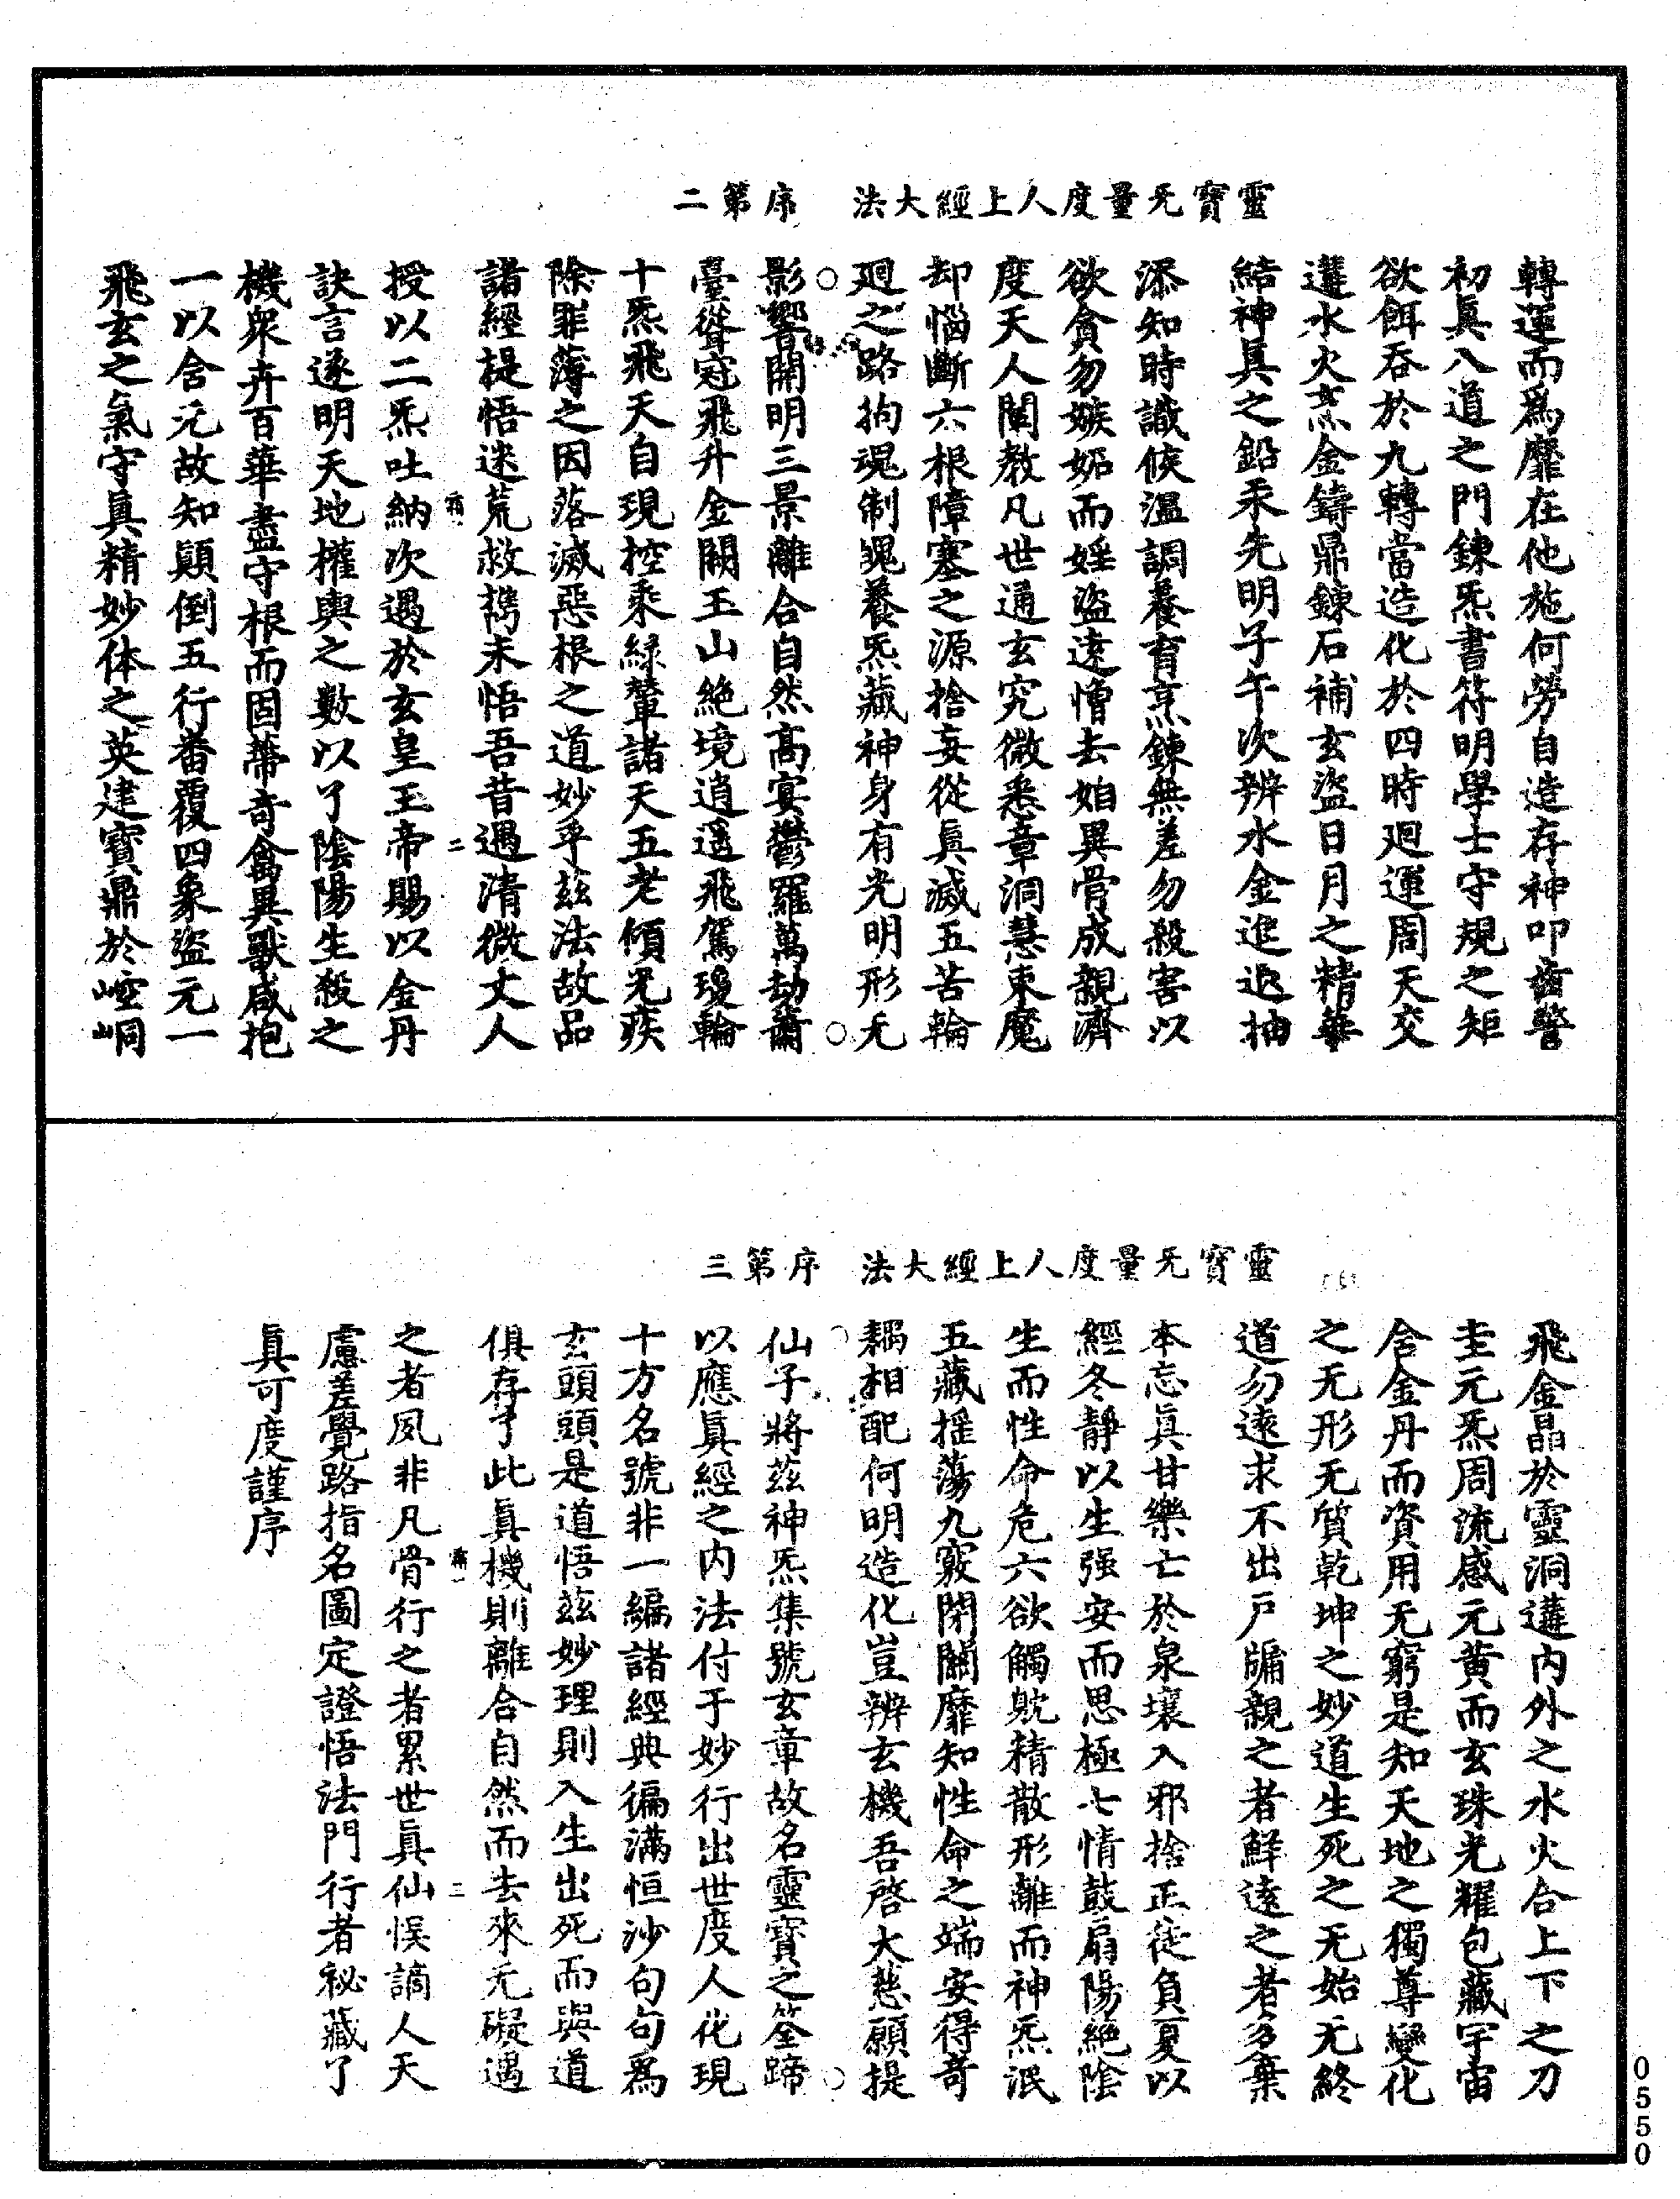 靈寶无量度人上經大法　序第二
轉運而爲靡在他施何勞自造存神叩齒警
初眞入道之門鍊炁書符明學士守規之矩
欲餌吞於九轉當造化於四時廻運周天交
遘水火烹金鑄鼎鍊石補玄盜日月之精華
結神眞之鉛汞先明子午次辨水金進退抽
添知時識候温調養育烹鍊無差勿殺害以
欲貪勿嫉妬而婬盜遠憎去妲異骨成親濟
度天人闡教凡世通玄究微悉章洞慧束魔
却惱斷六根障塞之源捨妄從眞滅五苦輪
廻之路拘魂制魄養炁藏神身有光明形无
影響開明三景離合自然高宴鬱羅萬劫蕭
臺聳冠飛升金闕玉山絶境逍遥飛駕瓊輪
十炁飛天自現控乘綠輦諸天五老傾光疾
除罪簿之因落滅惡根之道妙乎兹法故品
諸經提悟迷荒救擕未悟吾昔遇清微丈人
授以二炁吐納次遇於玄皇玉帝賜以金丹
訣言遂明天地權輿之數以了陰陽生殺之
機衆卉百華盡守根而固蔕奇禽異獸咸抱
一以含元故知顚倒五行番覆四象盜元一
飛玄之氣守眞精妙体之英建寶鼎於崆峒
二
靈寶无量度人上經大法　序第三
飛金晶於靈洞遘内外之水火合上下之刀
圭元炁周流感元黄而玄珠光耀包藏宇宙
含金丹而資用无窮是知天地之獨尊變化
之无形无質乾坤之妙道生死之无始无終
道勿遠求不出戸牖親之者鮮遠之者多棄
本忘眞甘樂亡於泉壤入邪捨正徒負夏以
經冬靜以生强安而思極七情鼓扇陽絶陰
生而性命危六欲觸躭精散形離而神炁泯
五藏摇蕩九竅閉關靡知性命之端安得奇
耦相配何明造化豈辨玄機吾啓大慈願提
仙子將兹神炁集號玄章故名靈寶之筌蹄
以應眞經之内法付于妙行出世度人化現
十方名號非一編諸經典徧滿恒沙句句爲
玄頭頭是道悟兹妙理則入生出死而與道
俱存了此眞機則離合自然而去來无礙遇
之者夙非凡骨行之者累世眞仙悞謫人天
慮差覺路指名圖定證悟法門行者祕藏了
眞可度謹序
三
0550